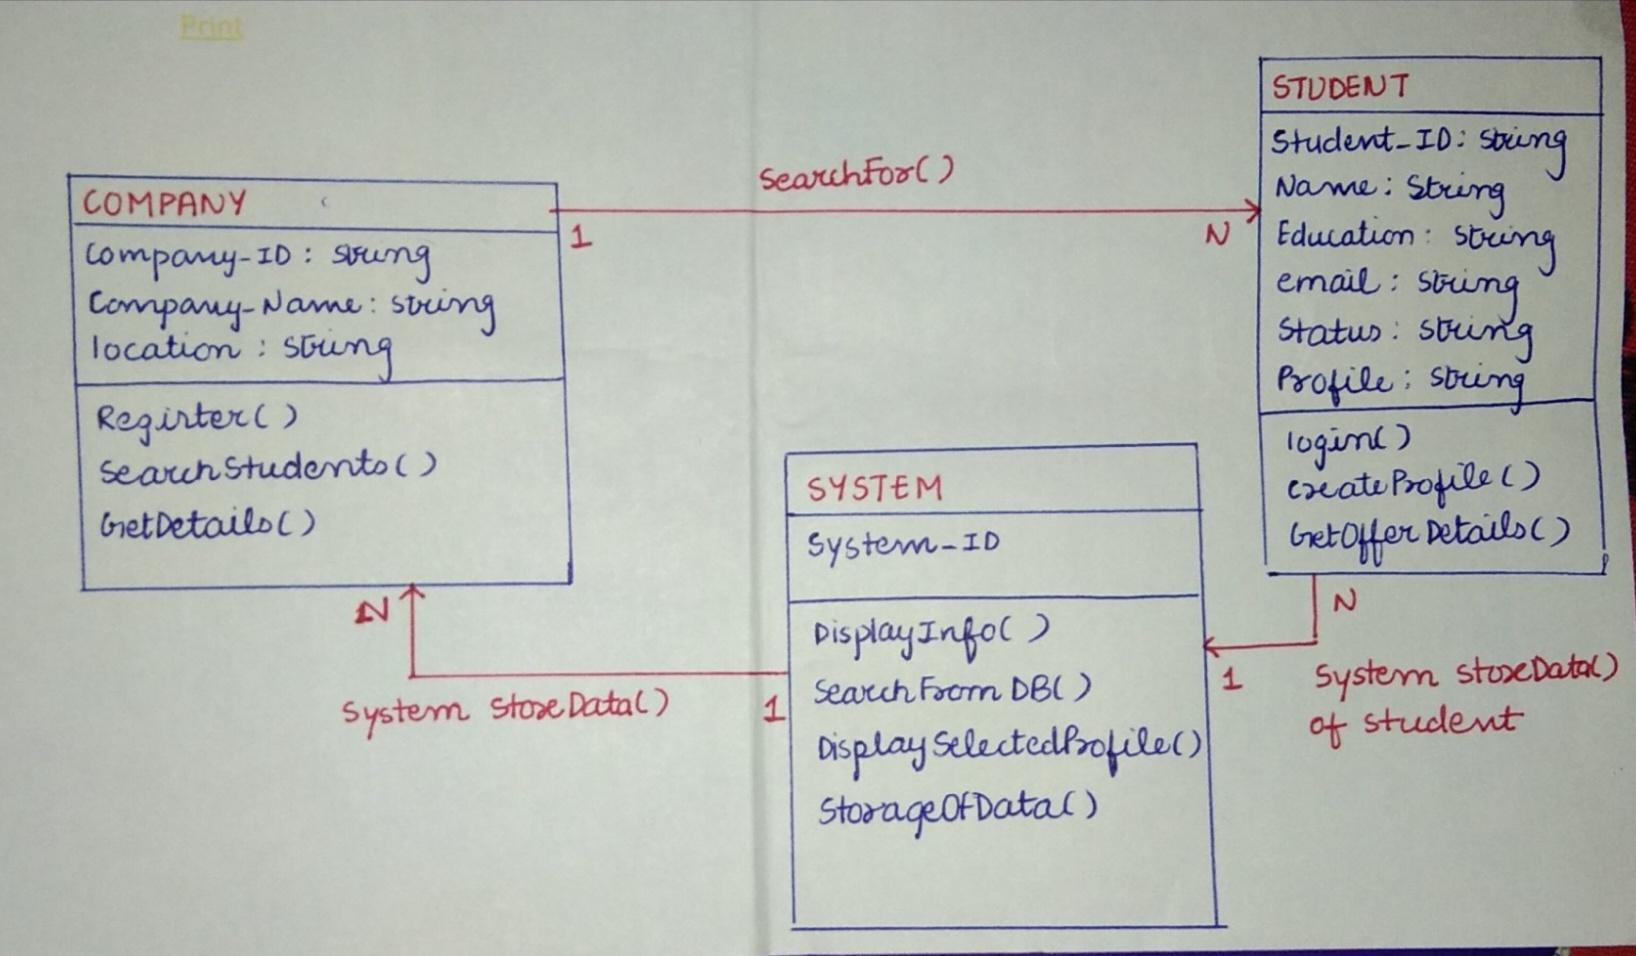 Print
COMPANY
Company-ID : string
Company-Name : string
location : string
Register()
SearchStudents()
GetDetails()
SearchFor()
1
N
STUDENT
Student_ID : string
Name : String
Education : string
email : string
Status : string
Profile : string
login()
CreateProfile()
GetOfferDetails()
SYSTEM
System_ID
DisplayInfo( )
SearchFromDB( )
DisplaySelectedProfile()
StorageOfData( )
N
System StoreData()
1
N
1
System StoreData()
of student